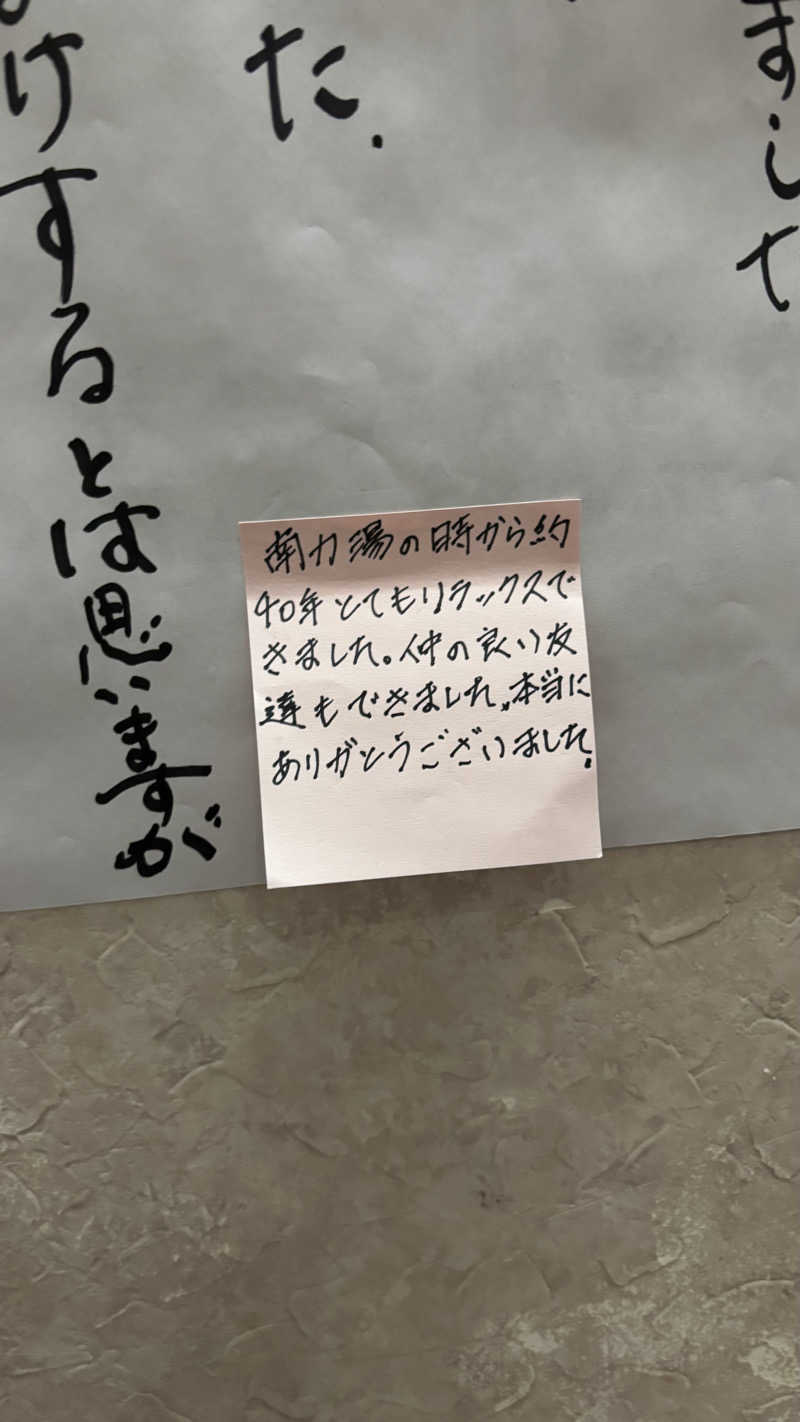 まして
た.
けするとは思いますが
南力湯の時から約
40年とてもリラックスで
きました。仲の良い友
達もできました。本当に
ありがとうございました。